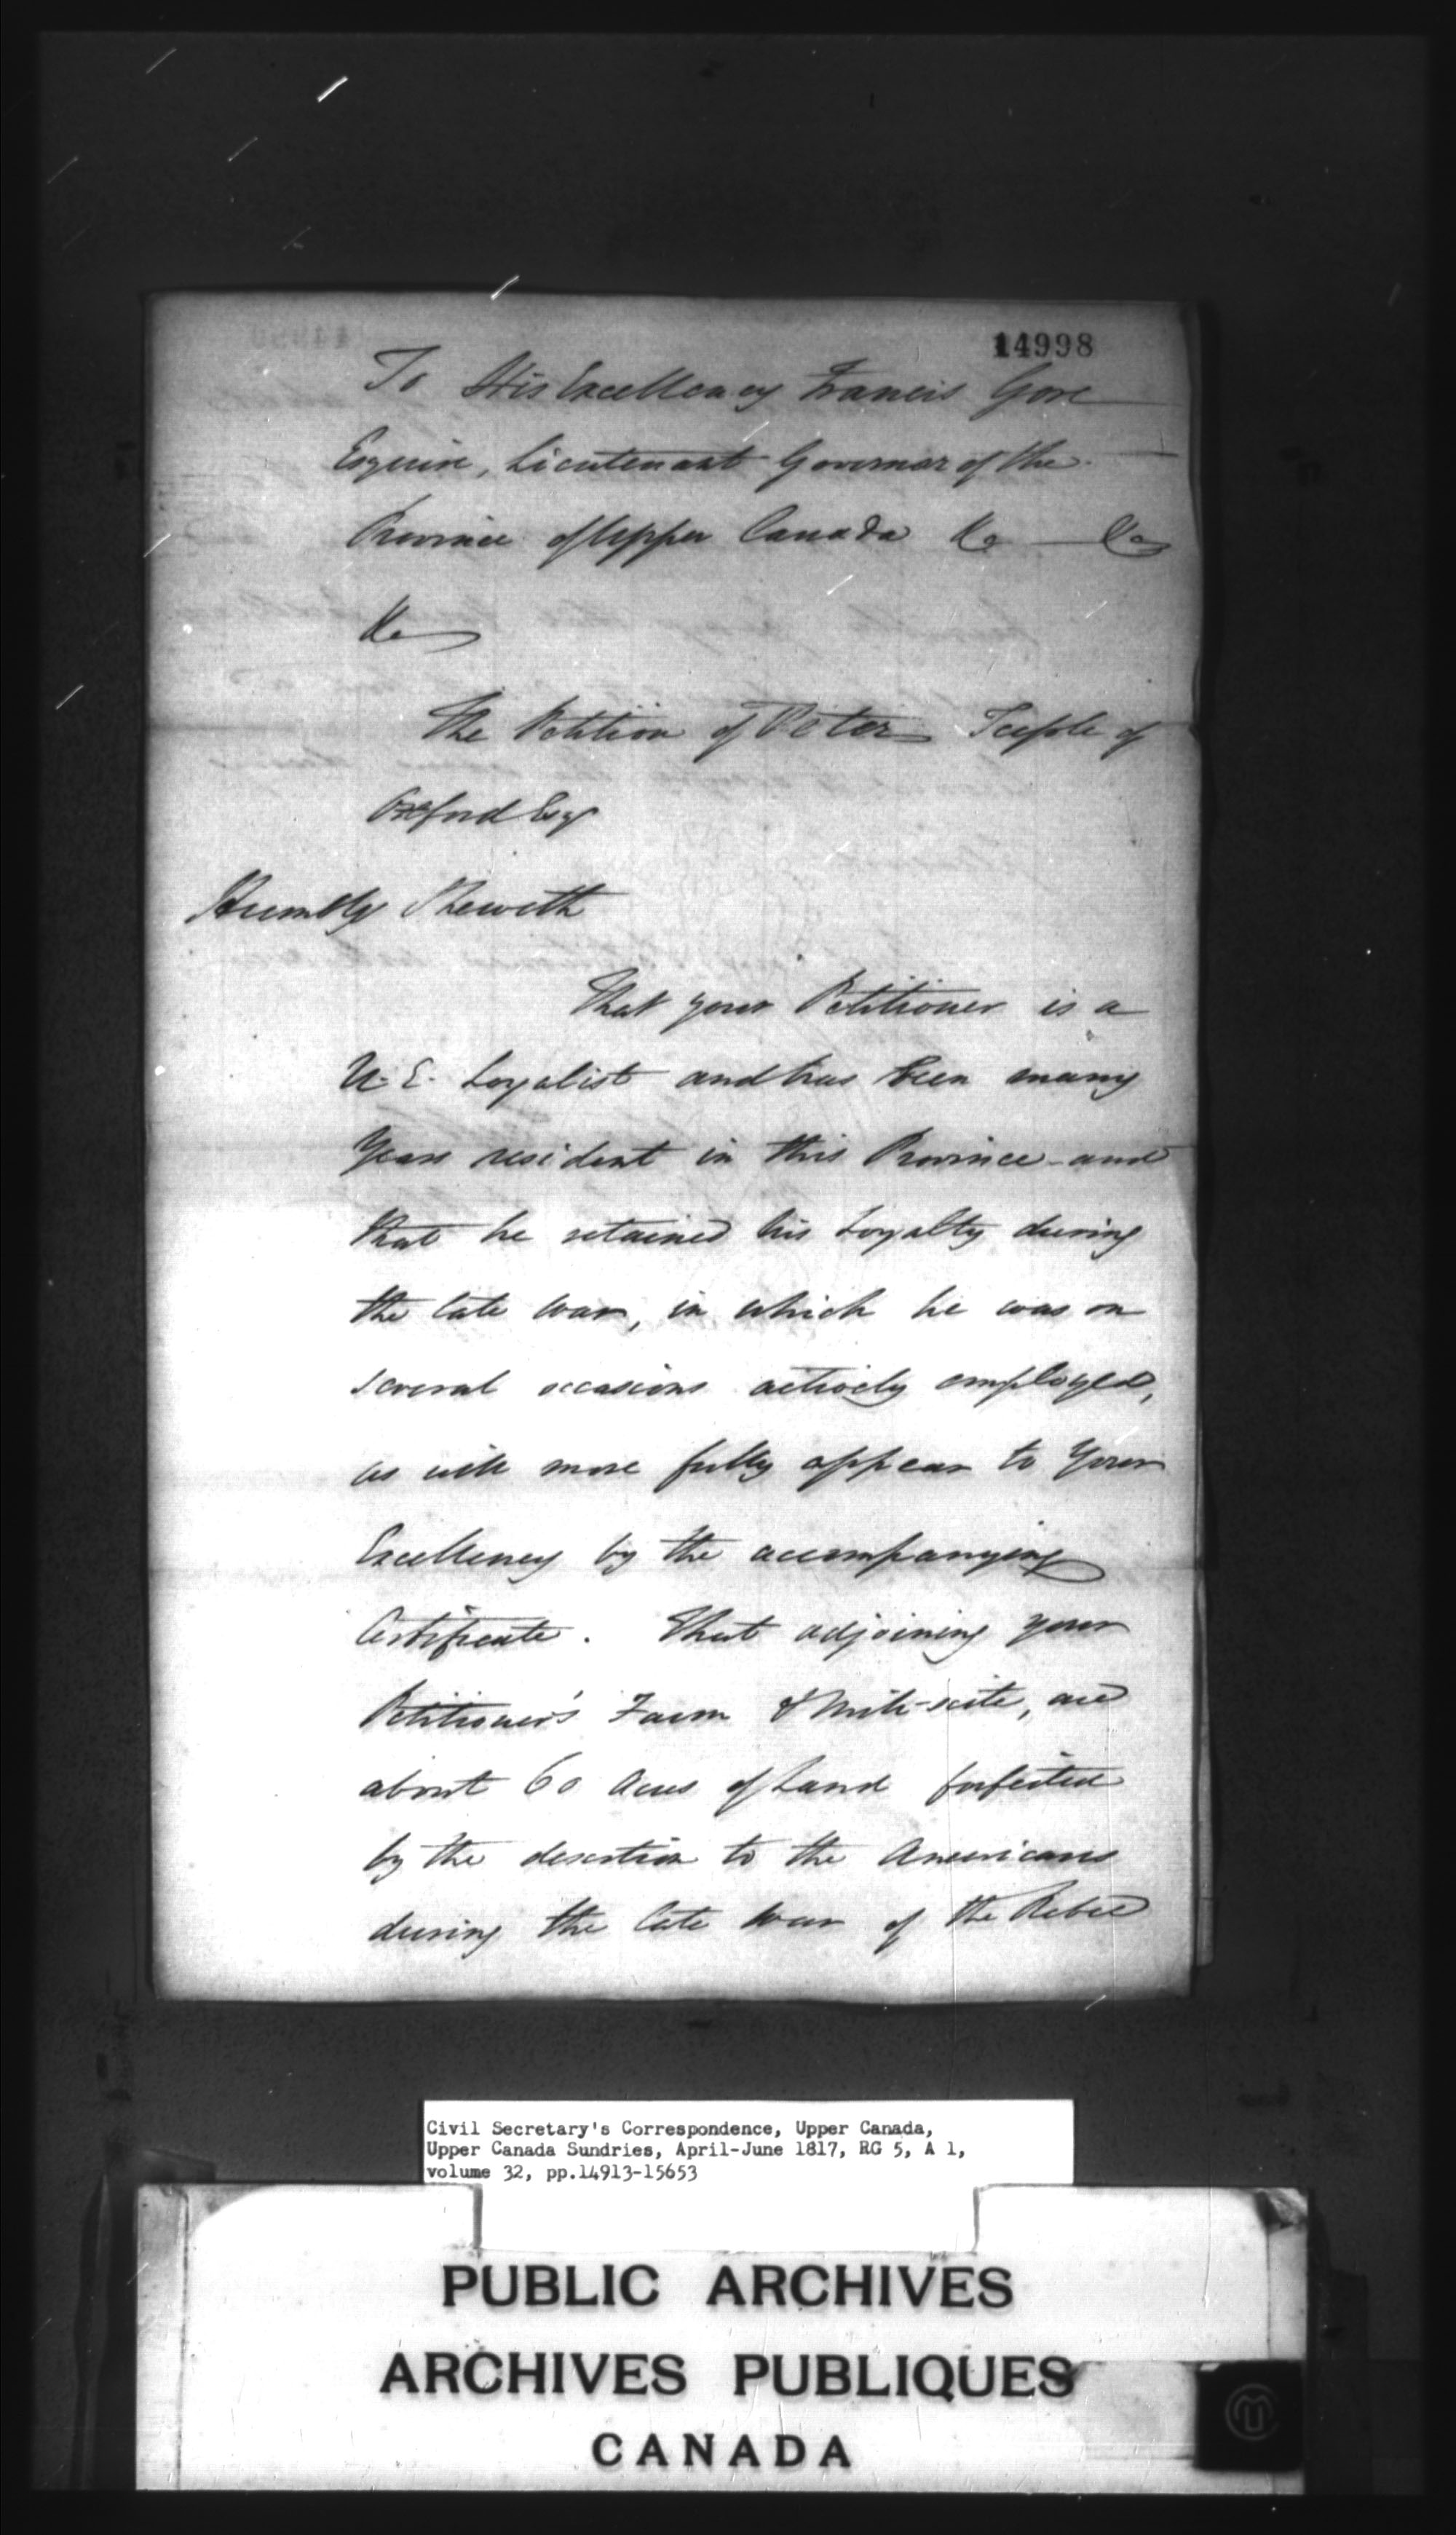 14998
To His Excellency Francis Gore
Esquire, Lieutenant Governor of the
Province of Upper Canada &c &c
&c
The Petition of Peter Teeple of
Oxford Esqr
Humbly Sheweth
That your Petitioner is a
U. E. Loyalist and has been many
Years resident in this Province and
that he retained his Loyalty during
the late War, in which he was on
several occasions actively employed,
as will more fully appear to Your
Excellency by the accompanying
Certificate. That adjoining your
Petitioner's Farm & Mill-scite, are
about 60 Acres of Land forfeited
by the desertion to the Americans
during the late War of the Rebel
Civil Secretary's Correspondence, Upper Canada,
Upper Canada Sundries, April-June 1817, RG 5, A 1,
volume 32, pp.14913-15653
PUBLIC ARCHIVES
ARCHIVES PUBLIQUES
CANADA